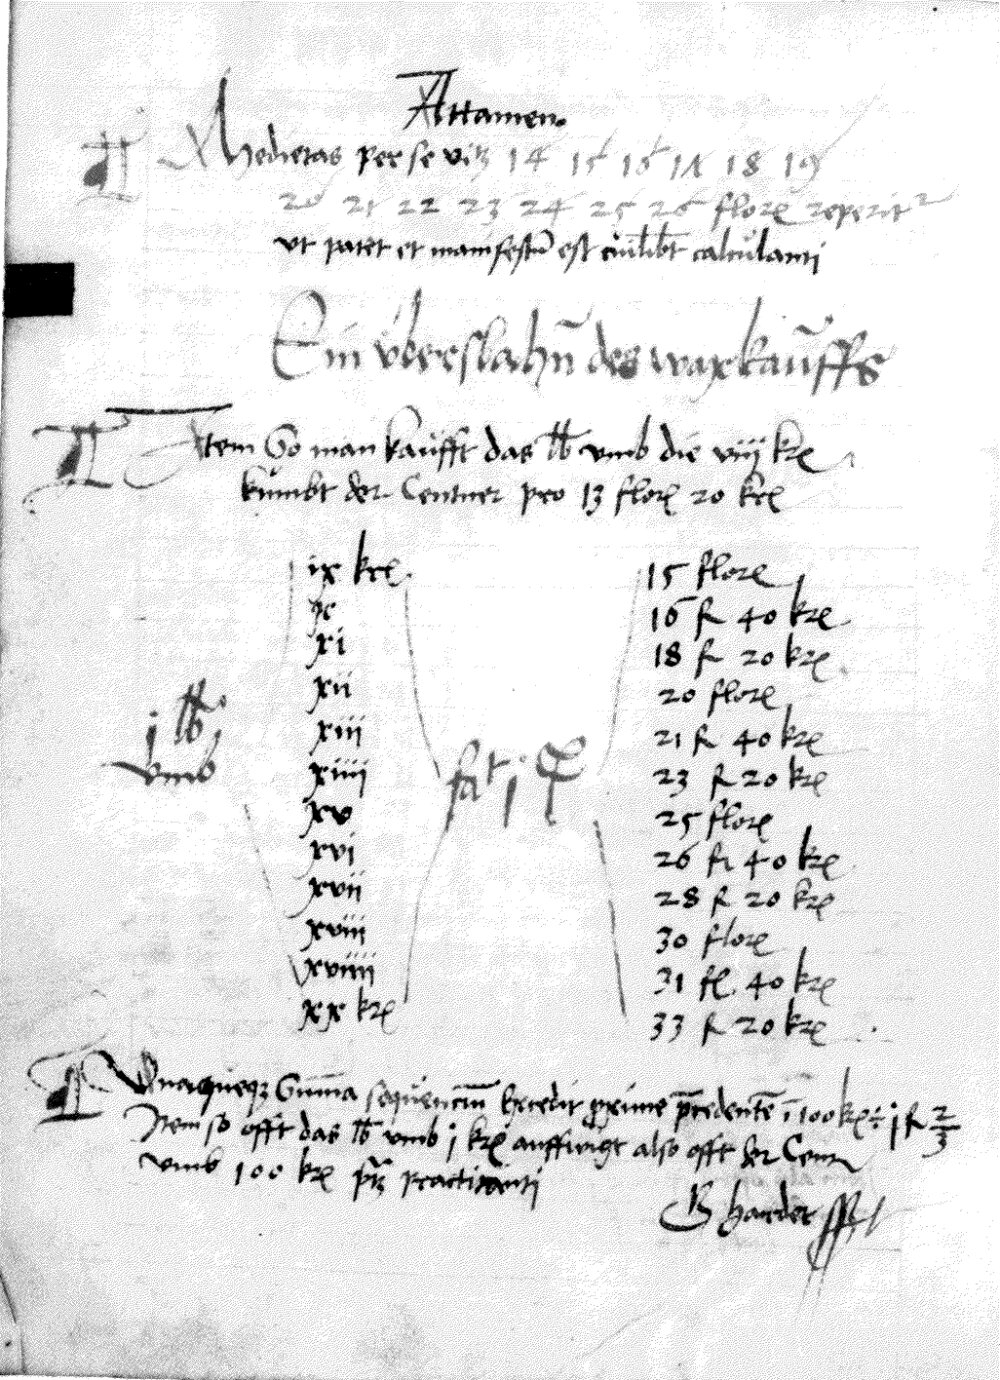 Attamen
Medietas per se vitz 14 15 16 17 18 19
20 21 22 23 24 25 26 floren reperitur
vt patet et manifestu est cuilibet calculanti
Ein vberslahn des waxkauffs
Item So man kaufft das lb vmb die viij kre
kumbt der Centner pro 13 floren 20 kre
ix kre 15 floren
x 16 fl 40 kre
xi 18 fl 20 kre
xii 20 floren
j lb vmb
xiii 21 fl 40 kre
xiiii 23 fl 20 kre
fat j
xv 25 floren
xvi 26 fl 40 kre
xvii 28 fl 20 kre
xviii 30 floren
xviiii 31 fl 40 kre
xx kre 33 fl 20 kre
Vnaqueqz Suma sequencium excedit proxime precedente i 100 kre j fl 2/3
Item so offt das lb vmb j kre auffsteigt also offt der Centn
vmb 100 kre ptz practicanti
G harder